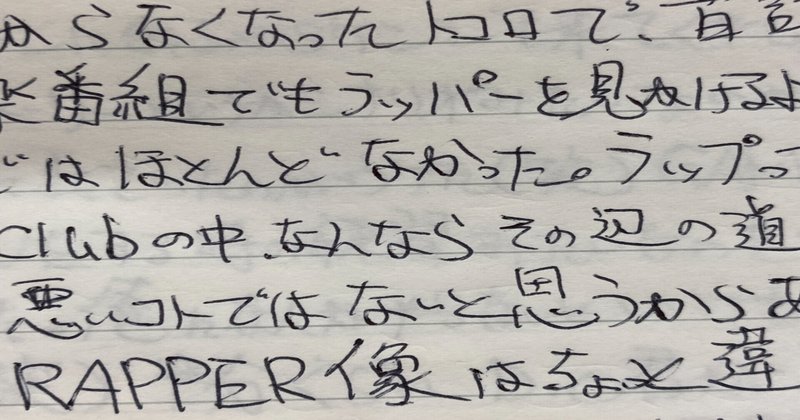 からなくなったトコロで、音
番組でもラッパーを見かけるよ
ではほとんどなかった。ラップっ
Clubの中、なんならその辺の道
悪いコトではないと思うからあ
RAPPER像はちょと違